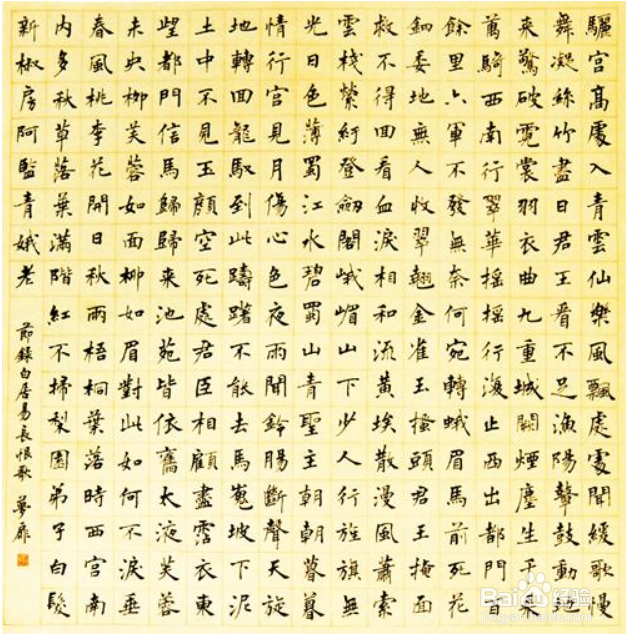 驪宮高處入青雲仙樂風飄處處聞緩歌慢
舞凝絲竹盡日君王看不足漁陽鼙鼓動地
來驚破霓裳羽衣曲九重城闕煙塵生千乘
萬騎西南行翠華搖搖行復止西出都門百
餘里六軍不發無奈何宛轉蛾眉馬前死花
鈿委地無人收翠翹金雀玉搔頭君王掩面
救不得回看血淚相和流黃埃散漫風蕭索
雲棧縈紆登劍閣峨嵋山下少人行旌旗無
光日色薄蜀江水碧蜀山青聖主朝朝暮暮
情行宮見月傷心色夜雨聞鈴腸斷聲天旋
地轉回龍馭到此躊躇不能去馬嵬坡下泥
土中不見玉顏空死處君臣相顧盡霑衣東
望都門信馬歸歸來池苑皆依舊太液芙蓉
未央柳芙蓉如面柳如眉對此如何不淚垂
春風桃李花開日秋雨梧桐葉落時西宮南
內多秋草落葉滿階紅不掃梨園弟子白髮
新椒房阿監青娥老
節錄白居易長恨歌
Baidu 经验